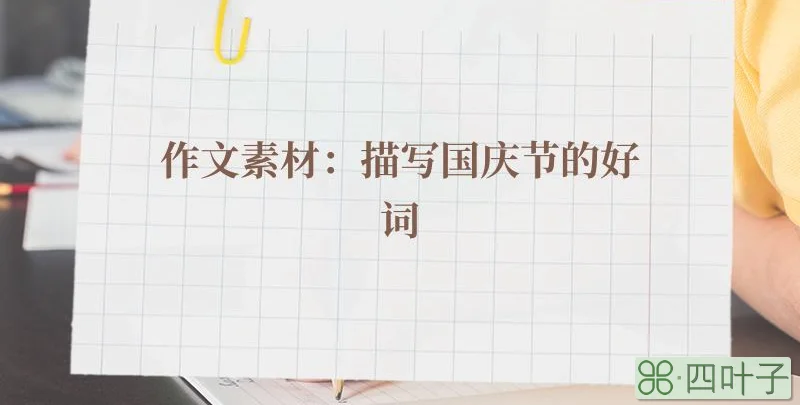 作文素材：描写国庆节的好
词
四叶子